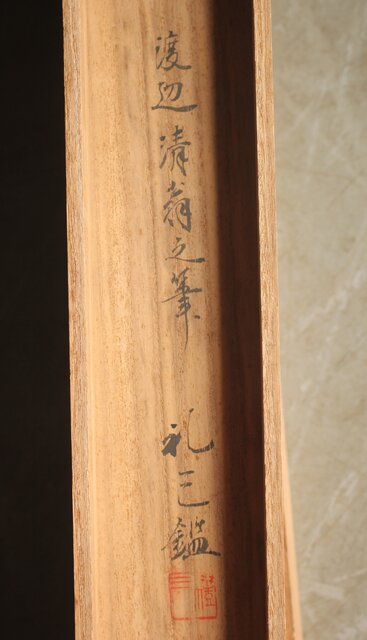 渡辺清翁之筆
礼三鑑